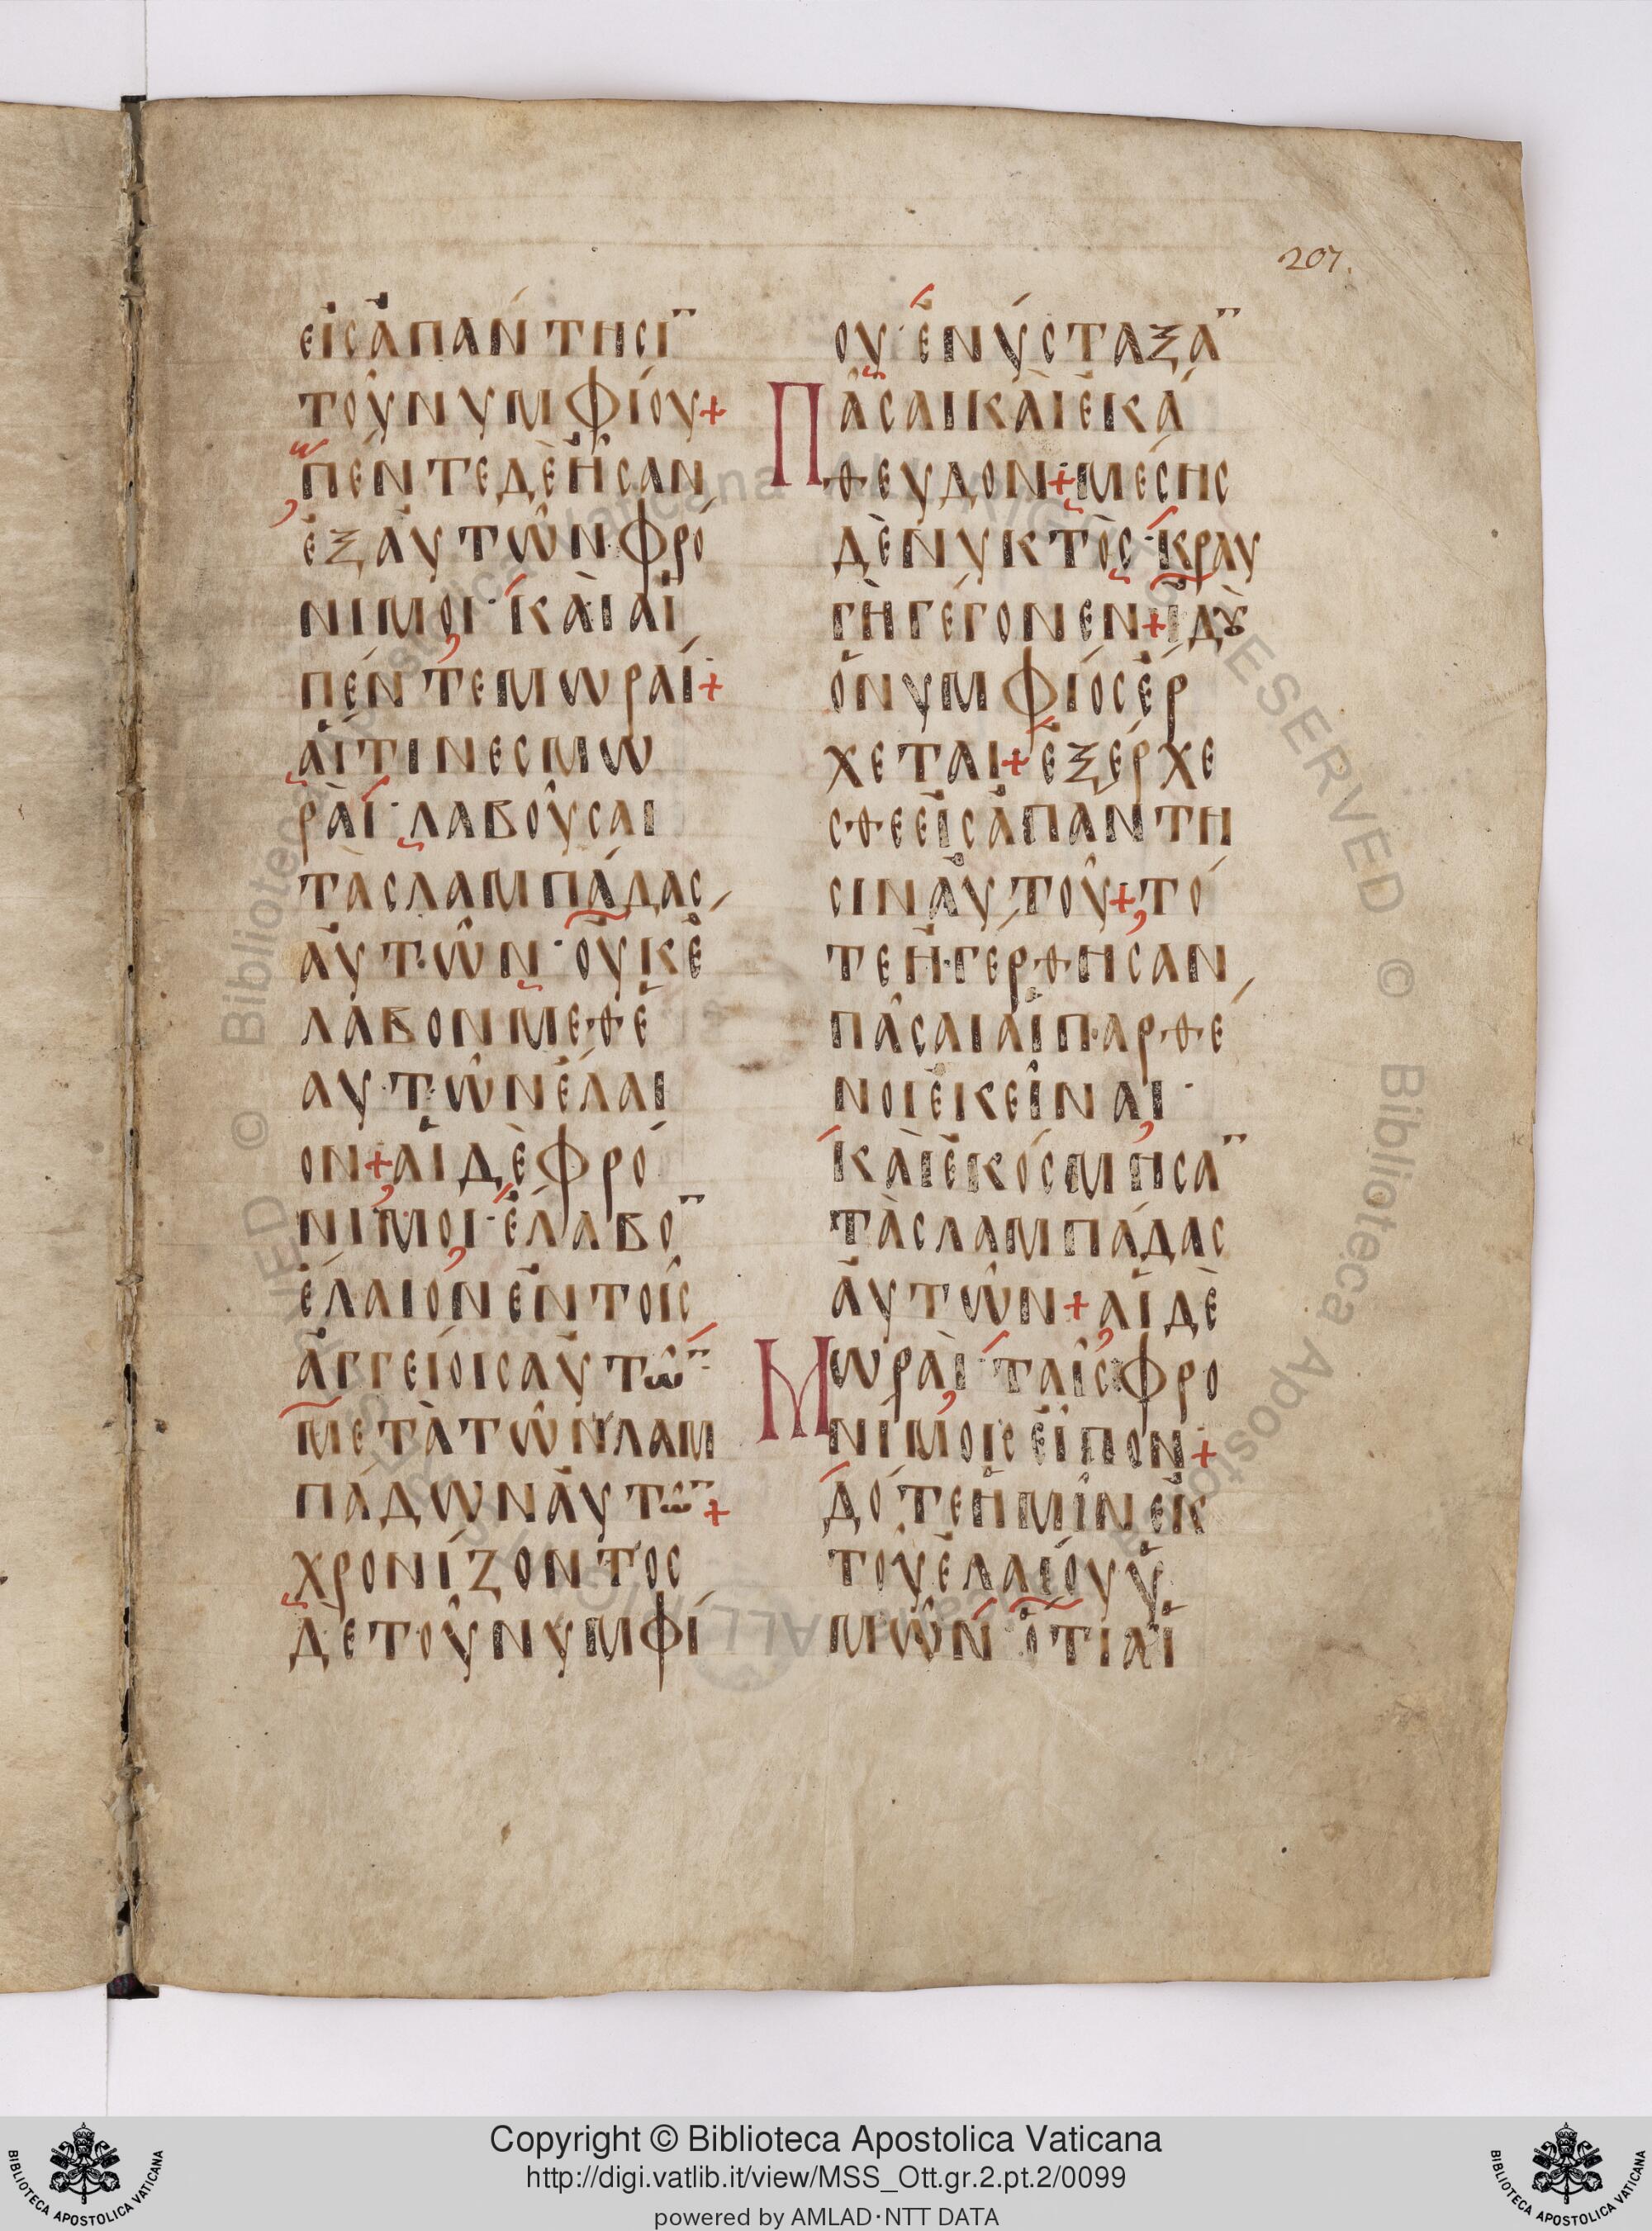 207.
εἰσἀπαντησῑ
τοῦνυμφίου+
πέντεδὲἦσαν
ἐξαὐτῶν·φρό
νιμοι·καὶαἱ
πέντεμωραί+
αἵτινεσμω
ραὶ·λαβοῦσαι
τὰσλαμπάδασ
αὐτῶν·οὐκἔ
λαβονμεθἑ
αυτῶνἔλαι
ον+αἱδὲφρό
νιμοι·ἔλαβο̄
ἔλαιονἐντοῖσ
ἀγγείοισαὐτῶ̄·
μετὰτῶνλαμ
πάδωναὐτῶ̄+
χρονίζοντοσ
δετοῦνυμφί
ου·ἐνύσταξᾱ
Πᾶσαικαὶἐκά
θευδον+μέσησ
δὲνυκτὸσ·κραυ
γὴγέγονεν+ἰδοὺ
ὁνυμφίοσἔρ
χεται+ἐξέρχε
σθεεἰσἀπαντη
σιναὐτοῦ+τό
τεἠγέρθησαν
πᾶσαιαἱπαρθέ
νοιἐκεῖναι·
καὶἐκόσμησᾱ
τὰσλαμπάδασ
αὐτῶν+αἱδὲ
Μωραὶ·ταῖσφρο
νίμοισεἶπον+
δότεἡμῖνἐκ
τοῦἐλαίουὑ
μῶν·ὅτιαἱ
Copyright © Biblioteca Apostolica Vaticana
http://digi.vatlib.it/view/MSS_Ott.gr.2.pt.2/0099
powered by AMLAD·NTT DATA
BIBLIOTECA APOSTOLICA VATICANA
BIBLIOTECA APOSTOLICA VATICANA